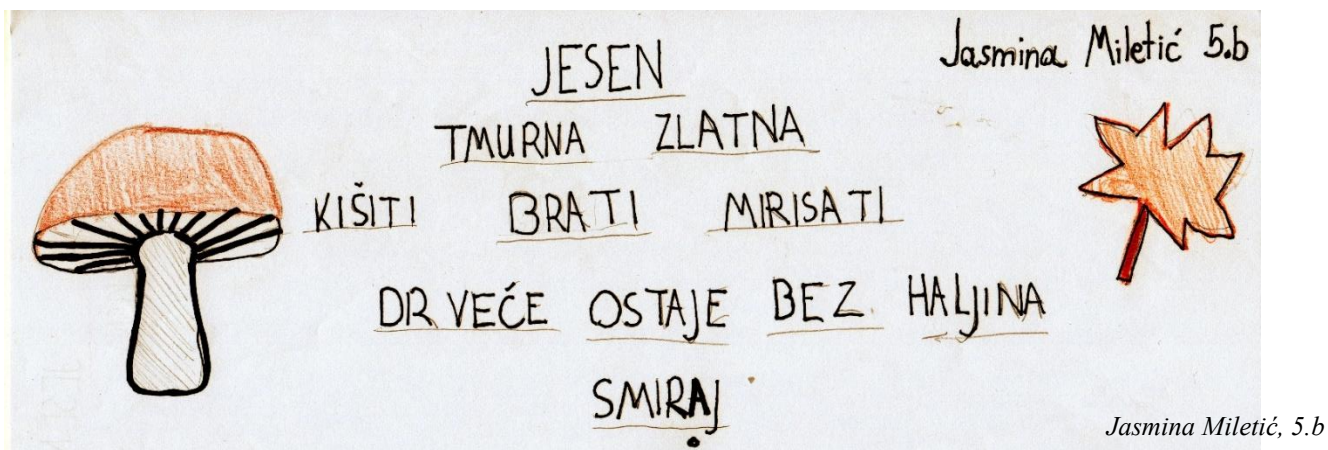 Jasmina Miletić 5.b
JESEN
TMURNA ZLATNA
KIŠITI BRATI MIRISATI
DRVEĆE OSTAJE BEZ HALJINA
SMIRAJ
Jasmina Miletić, 5.b